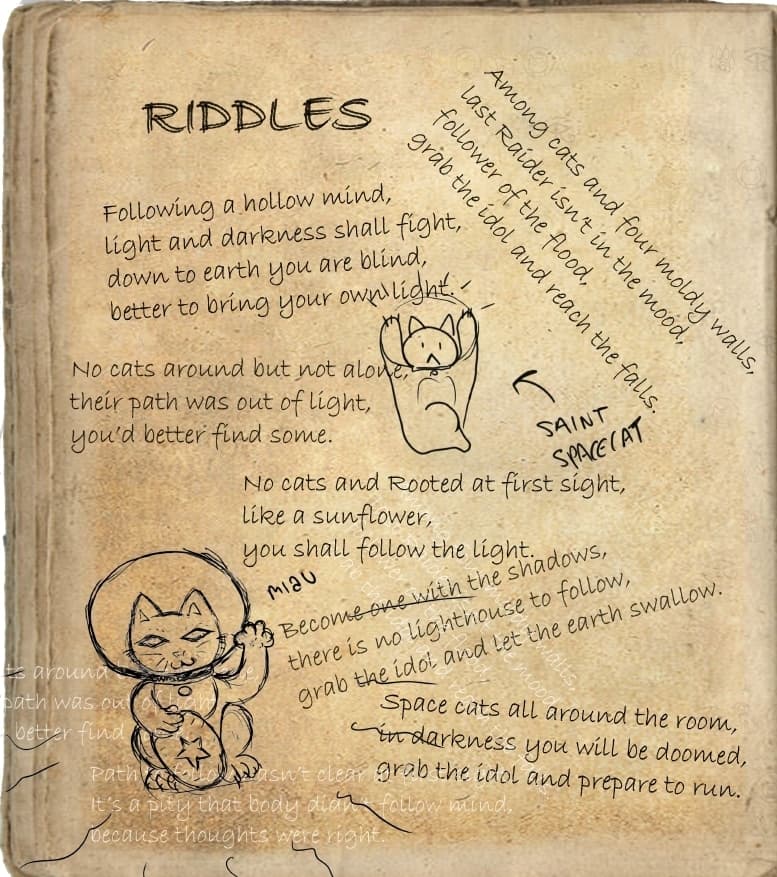 RIDDLES
Among cats and four moldy walls,
last Raider isn't in the mood,
follower of the flood,
grab the idol and reach the falls.
Following a hollow mind,
light and darkness shall fight,
down to earth you are blind,
better to bring your own light.
No cats around but not alone,
their path was out of light,
you'd better find some.
SAINT
SPACECAT
No cats and Rooted at first sight,
like a sunflower,
you shall follow the light.
miau
Become one with the shadows,
there is no lighthouse to follow,
grab the idol and let the earth swallow.
Space cats all around the room,
in darkness you will be doomed,
grab the idol and prepare to run.
ts around
path was out of light
better find
Path to follow wasn't clear
It's a pity that body didn't follow mind,
because thoughts were right.